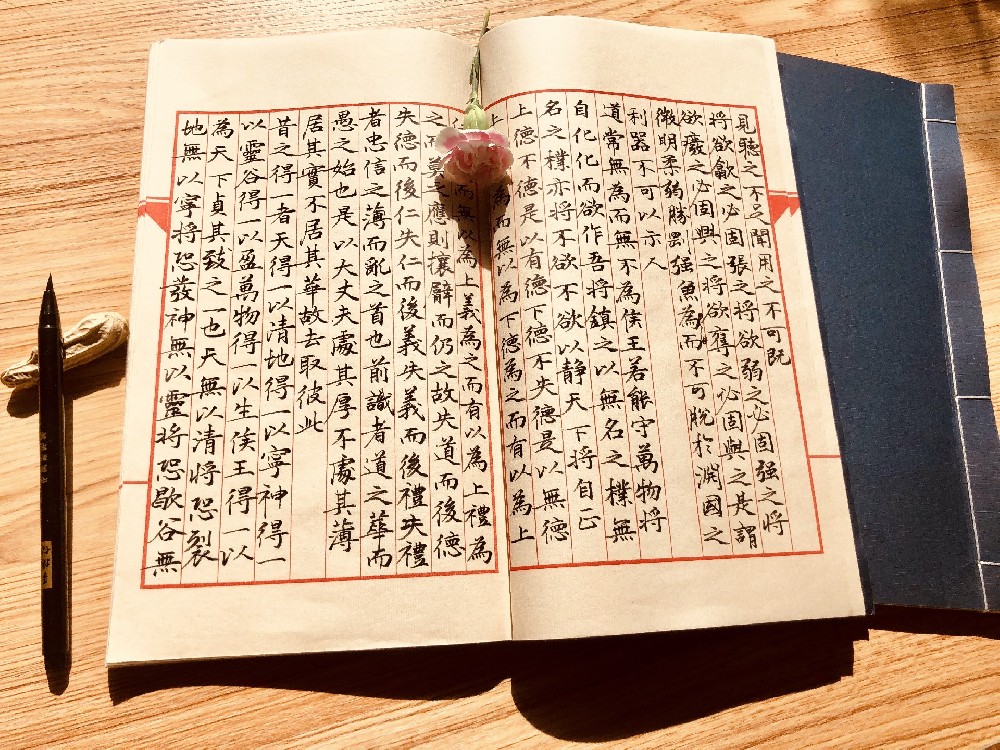 見聽之不足聞用之不可既
將欲歙之必固張之將欲弱之必固强之將
欲廢之必固興之將欲奪之必固與之是謂
微明柔弱勝剛强魚為而不可脫於淵國之
利器不可以示人
道常無為而無不為侯王若能守萬物將
自化化而欲作吾將鎮之以無名之樸無
名之樸亦將不欲不欲以静天下將自正
上德不德是以有德下德不失德是以無德
上為而無以為下德為之而有以為上
而無以為上義為之而有以為上禮為
之而莫之應則攘臂而仍之故失道而後德
失德而後仁失仁而後義失義而後禮夫禮
者忠信之薄而亂之首也前識者道之華而
愚之始也是以大丈夫處其厚不處其薄
居其實不居其華故去取彼此
昔之得一者天得一以清地得一以寧神得一
以靈谷得一以盈萬物得一以生侯王得一以
為天下貞其致之一也天無以清將恐裂
地無以寧將恐發神無以靈將恐歇谷無